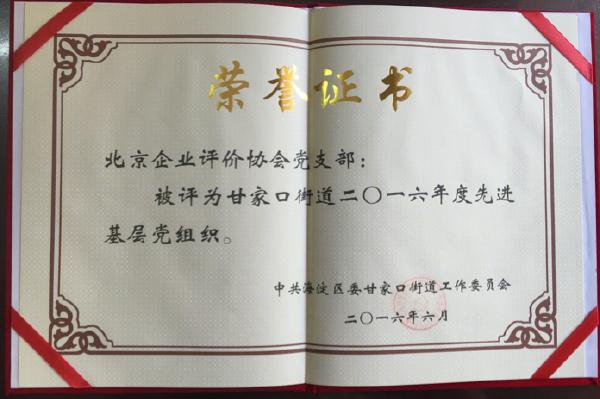 荣誉证书
北京企业评价协会党支部：
被评为甘家口街道二〇一六年度先进
基层党组织。
中共海淀区委甘家口街道工作委员会
二〇一六年六月